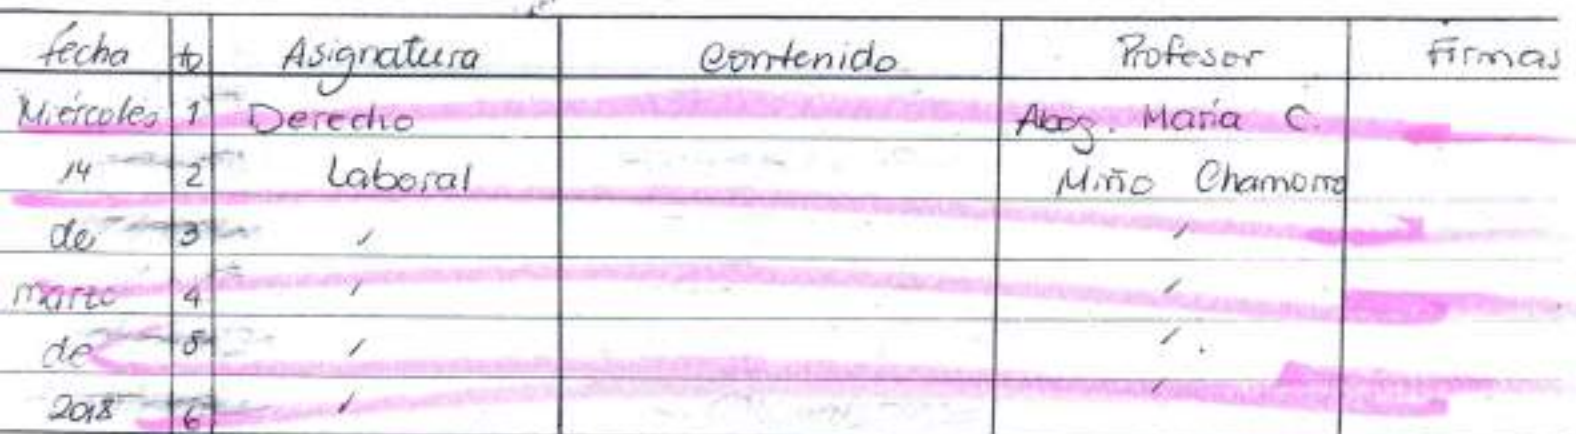 fecha Asignatura Contenido Profesor Firmas
Miércoles 1 Derecho Abog. María C.
14 2 Laboral Miño Chamorro
de 3 ′ ′
marzo 4 ′ ′
de 5 ′ ′.
2018 6 ′ ′